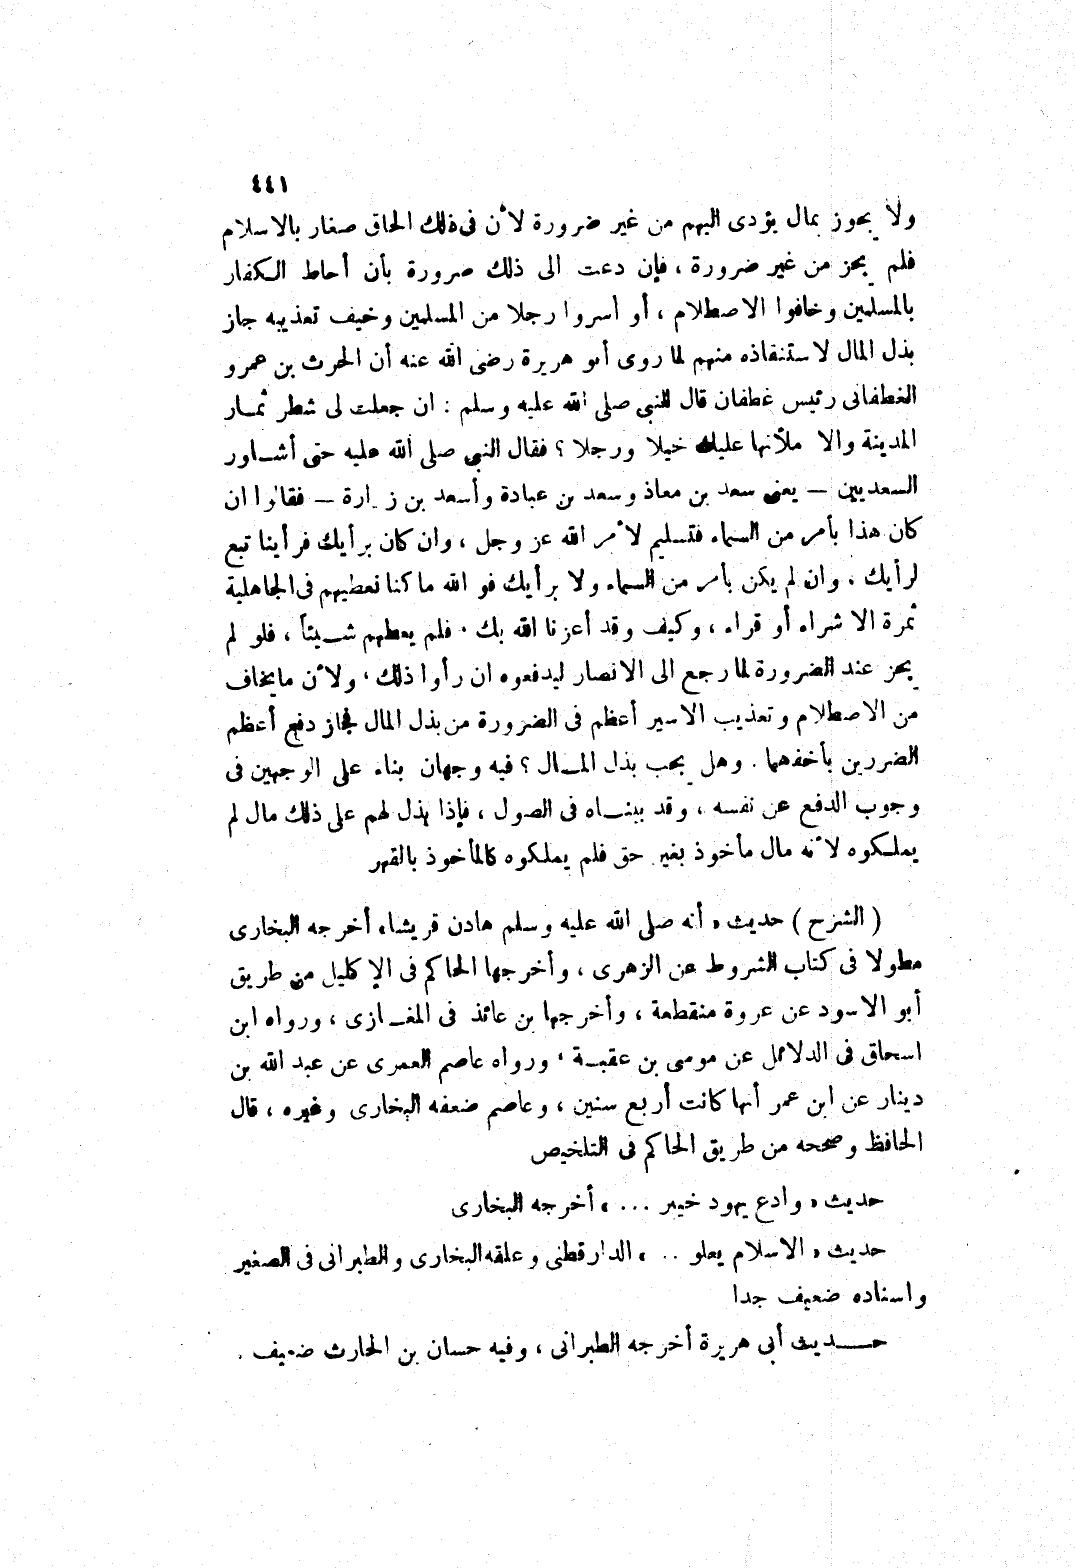 ٤٤١
ولا يجوز بمال يؤدى اليهم من غير ضرورة لأن فى ذلك الحاق صغار بالاسلام
فلم يجز من غير ضرورة ، فإن دعت الى ذلك ضرورة بأن أحاط الكفار
بالمسلمين وخافوا الاصطلام ، أو أسروا رجلا من المسلمين وخيف تعذيبه جاز
بذل المال لاستنقاذه منهم لما روى أبو هريرة رضى الله عنه أن الحرث بن عمرو
الغطفانى رئيس غطفان قال للنبى صلى الله عليه وسلم : ان جعلت لى شطر ثمار
المدينة والا ملأتها عليك خيلا ورجلا ؟ فقال النبى صلى الله عليه حتى أشاور
السعديين – يعنى سعد بن معاذ وسعد بن عبادة وأسعد بن زرارة – فقالوا ان
كان هذا بأمر من السماء فتسليم لأمر الله عز وجل ، وان كان برأيك فرأينا تبع
لرأيك ، وان لم يكن بأمر من السماء ولا برأيك فو الله ما كنا نعطيهم فى الجاهلية
ثمرة الا شراء أو قراء ، وكيف وقد أعزنا الله بك . فلم يعطهم شيئاً ، فلو لم
يجز عند الضرورة لما رجع الى الانصار ليدفعوه ان رأوا ذلك ، ولأن ما يخاف
من الاصطلام وتعذيب الاسير أعظم فى الضرورة من بذل المال فجاز دفع أعظم
الضررين بأخفهما . وهل يجب بذل المال ؟ فيه وجهان بناء على الوجهين فى
وجوب الدفع عن نفسه ، وقد بيناه فى الصول ، فإذا بذل لهم على ذلك مال لم
يملكوه لأنه مال مأخوذ بغير حق فلم يملكوه كالمأخوذ بالقهر
( الشرح ) حديث « أنه صلى الله عليه وسلم هادن قريشا » أخرجه البخارى
مطولا فى كتاب الشروط عن الزهرى ، وأخرجها الحاكم فى الإكليل من طريق
أبو الاسود عن عروة منقطعة ، وأخرجها بن عائذ فى المغازى ، ورواه ابن
اسحاق فى الدلائل عن موسى بن عقبة ، ورواه عاصم العمرى عن عبد الله بن
دينار عن ابن عمر أنها كانت أربع سنين ، وعاصم ضعفه البخارى وغيره ، قال
الحافظ وصححه من طريق الحاكم فى التلخيص
حديث « وادع يهود خيبر ... » أخرجه البخارى
حديث « الاسلام يعلو .. » الدارقطنى وعلقه البخارى والطبرانى فى الصغير
واسناده ضعيف جدا
حديث أبى هريرة أخرجه الطبرانى ، وفيه حسان بن الحارث ضعيف .